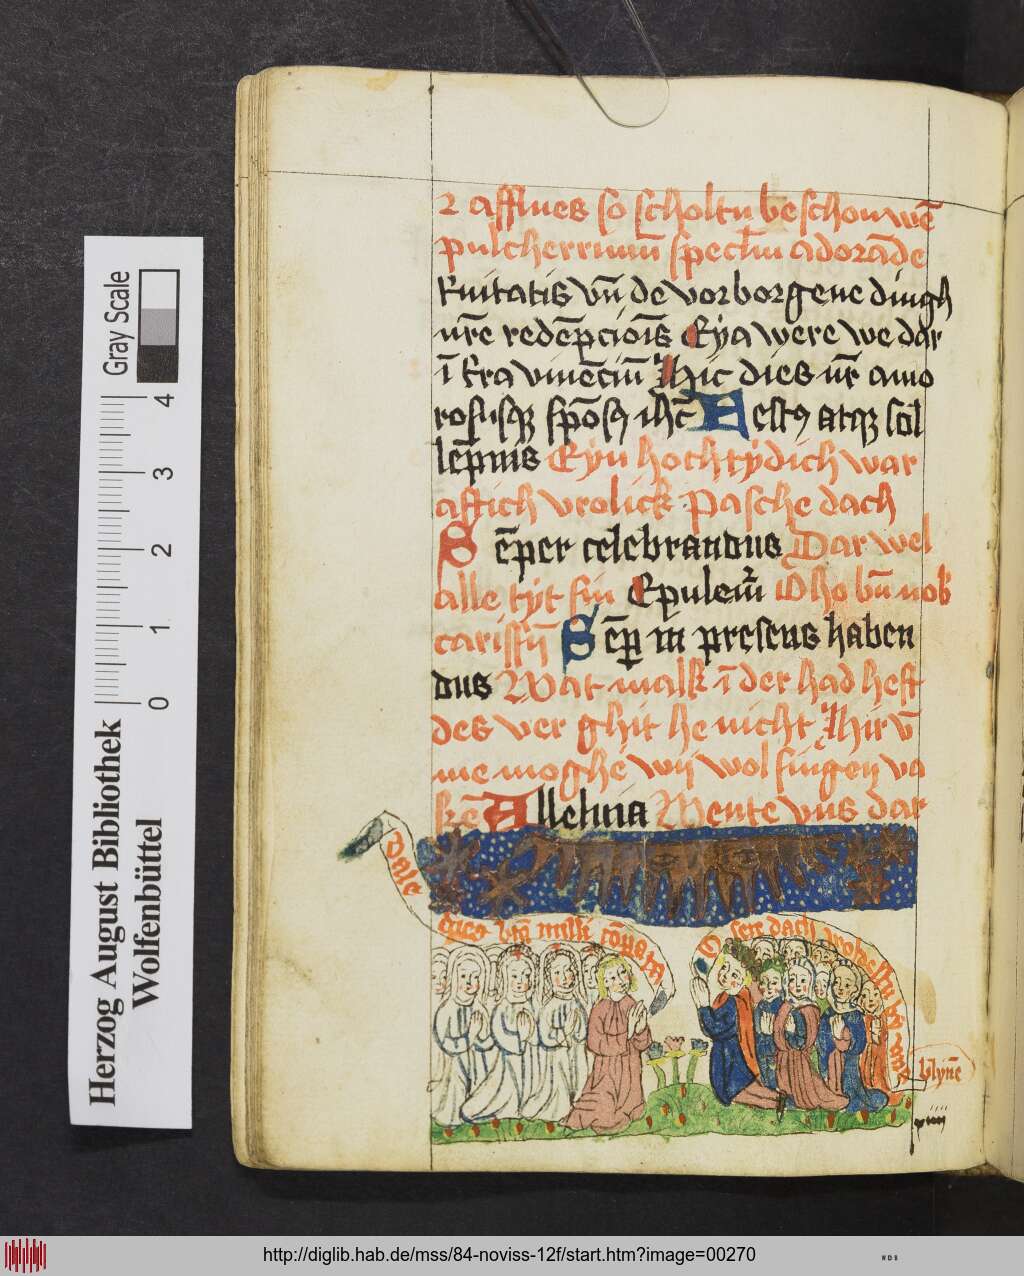 ⁊ afflues so scholtu beschouwē
pulcherrimū specl̄m adorāde
t̄nitatis vn̄ de vorborgene dingh
nr̄e redēpcionis̄ Eya were we dar
ī t̄ra viuēciū Hic dies nr̄ amo
rosusqꝫ spōsꝰ ihc̄ Aestꝰ atqꝫ sol
lēpnis Eyn hochtydich war
aftich vrolick Pasche dach
Sēper celebrandus Dar wel
alle tyt sin Epulem̄ Oho bn̄ nob
carissi Sēꝑ in presens haben
dus Wat malk ī der had heft
des ver ghit he nicht Hir v̄
me moghē wy wol singen va
kē Alleluia Mente vns dar
dale
vtā
O ser dach wol
blynē
Gray Scale
4
3
2
1
0
Herzog August Bibliothek
Wolfenbüttel
http://diglib.hab.de/mss/84-noviss-12f/start.htm?image=00270
WDB